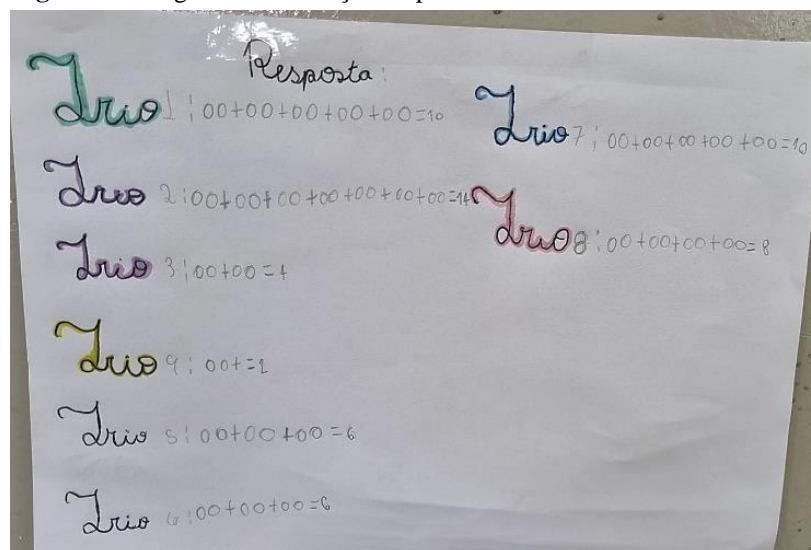 Resposta:
Trio 1: 00+00+00+00+00=10
Trio 2:00+00+00+00+00+00+00=14
Trio 3:00+00=4
Trio 4: 00+=2
Trio 5:00+00+00=6
Trio 6:00+00+00=6
Trio 7: 00+00+00+00+00=10
Trio 8:00+00+00+00=8